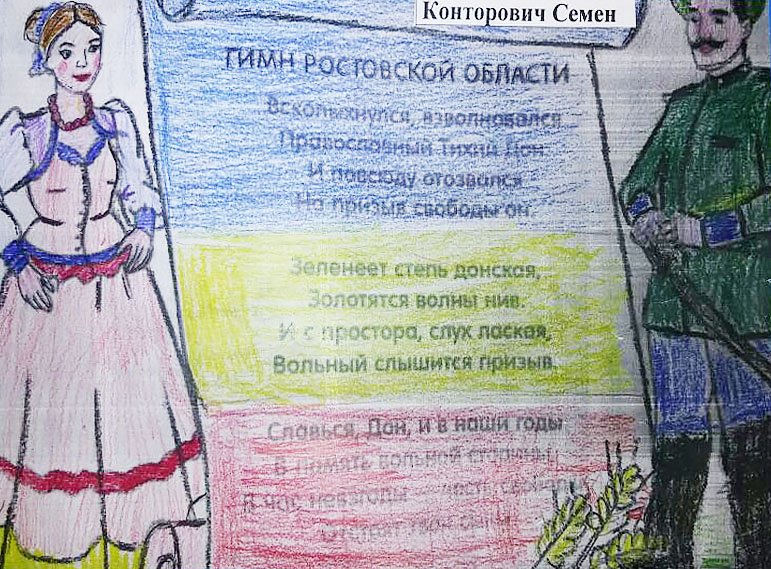 Конторович Семен
ГИМН РОСТОВСКОЙ ОБЛАСТИ
Всколыхнулся, взволновался
Православный Тихий Дон.
И повсюду отозвался
На призыв свободы он.
Зеленеет степь донская,
Золотятся волны нив.
И с простора, слух лаская,
Вольный слышится призыв.
Славься, Дон, и в наши годы
В память вольной старины,
В час невзгоды честь